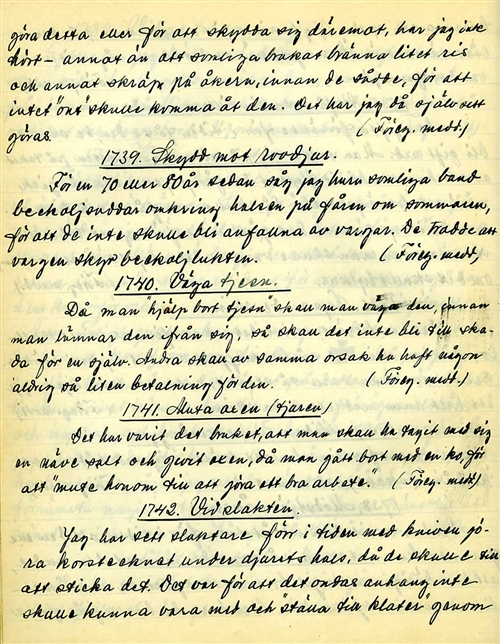 göra detta eller för att skydda sig däremot, har jag inte
hört – annat än att somliga brukat bränna litet ris
och annat skräp på åkern, innan de sådde, för att
intet "ont" skulle komma åt den. Det har jag då själv sett
göras. (Föreg. medd.)
1739. Skydd mot rovdjur.
För en 70 eller 80 år sedan såg jag huru somliga band
beckoljsuddar omkring halsen på fåren om sommaren,
för att de inte skulle bli anfallna av vargar. De trodde att
vargen skyr beckoljlukten. (Föreg. medd.)
1740. Väga tjeen.
Då man "hjälp bort tjeen" skall man väga den, innan
man lämnar den ifrån sig, så skall det inte bli till ska-
da för en själv. Andra skall av samma orsak ha haft någon
aldrig så liten betalning för den. (Föreg. medd.)
1741. Muta oxen (tjuren)
Det har varit det bruket, att man skall ha tagit med sig
en näve salt och givit oxen, då man gått bort med en ko, för
att "mute honom till att göra ett bra arbete". (Föreg. medd.)
1742. Vid slakten.
Jag har sett slaktare förr i tiden med kniven gö-
ra korstecknet under djurets hals, då de skulle till
att sticka det. Det var för att det ondas anhang inte
skulle kunna vara med och "ställa till klater" genom